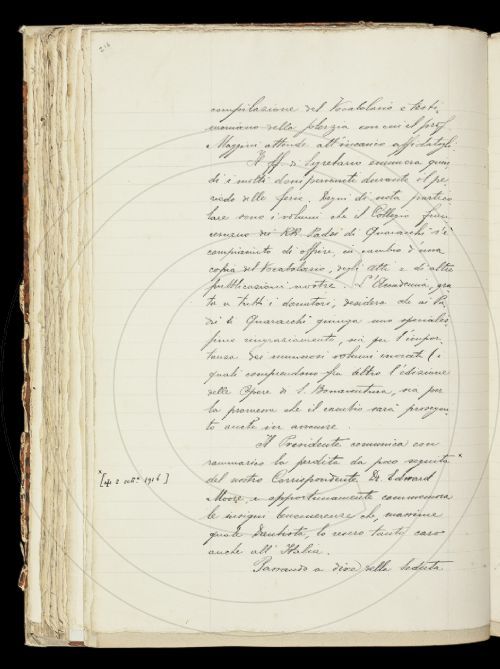 216
compilazione del Vocabolario e testi-
moniano della solerzia con cui il prof.
Maggini attende all'incarico affidatogli.
Il ff. di Segretario enumera quin-
di i molti doni pervenuti durante il pe-
riodo delle ferie. Degni di nota partico-
lare sono i volumi che il Collegio fran-
cescano dei RR. Padri di Quaracchi s'è
compiaciuto di offrire, in cambio d'una
copia del Vocabolario, degli Atti e di altre
pubblicazioni nostre. L'Accademia, gra-
ta a tutti i donatori, desidera che ai Pa-
dri di Quaracchi giunga uno specialis-
simo ringraziamento, sia per l'impor-
tanza dei numerosi volumi inviati (i
quali comprendono fra altro l'edizione
delle Opere di S. Bonaventura, sia per
la promessa che il cambio sarà prosegui-
to anche in avvenire.
Il Presidente comunica con
rammarico la perdita da poco seguita x
x [il 2 7bre 1916]
del nostro Corrispondente Dr. Edward
Moore, e opportunamente commemora
le insigni benemerenze che, massime
quale Dantista, lo resero tanto caro
anche all'Italia.
Passando a dire della Seduta